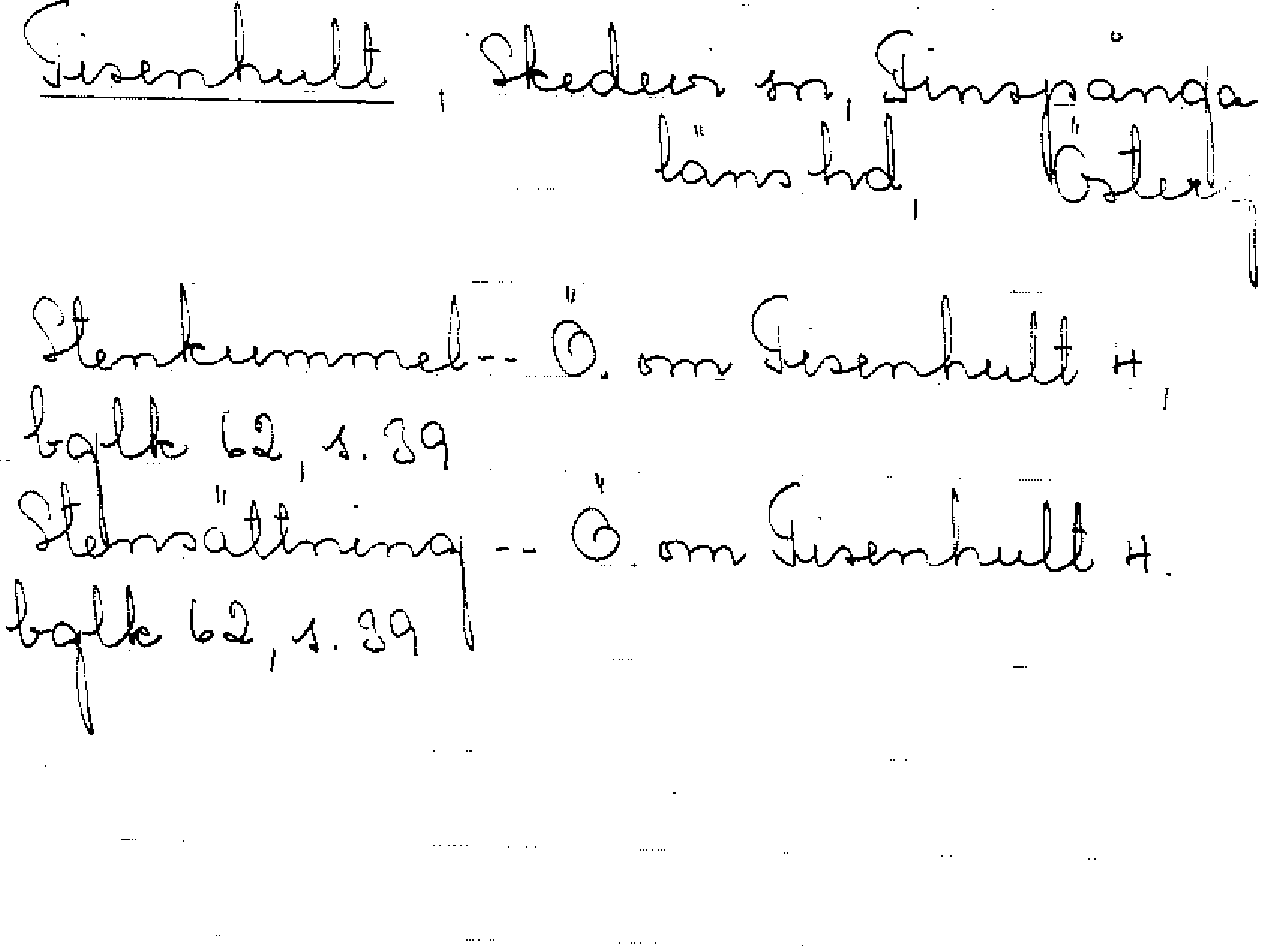 Tisenhult, Skedevi sn, Finspånga
läns hd, Österg
Stenkummel -- Ö. om Tisenhult 4,
bglk 62, s. 39
Stensättning -- Ö. om Tisenhult 4.
bglk 62, s. 39